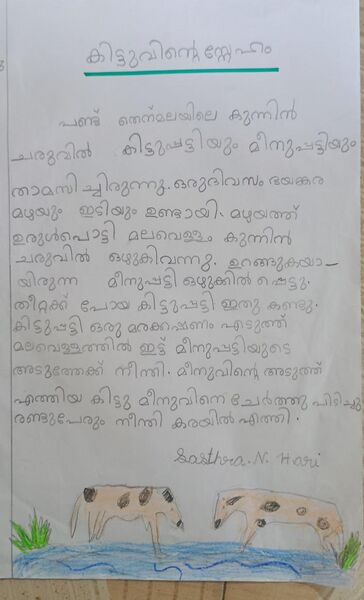 കിട്ടുവിന്റെ സ്നേഹം
പണ്ട് തെന്മലയിലെ കുന്നിൻ
ചരുവിൽ കിട്ടുപ്പട്ടിയും മീനുപ്പട്ടിയും
താമസിച്ചിരുന്നു. ഒരുദിവസം ഭയങ്കര
മഴയും ഇടിയും ഉണ്ടായി. മഴയത്ത്
ഉരുൾപൊട്ടി മലവെള്ളം കുന്നിൻ
ചരുവിൽ ഒഴുകിവന്നു. ഉറങ്ങുകയാ-
യിരുന്ന മീനുപ്പട്ടി ഒഴുക്കിൽ പ്പെട്ടു.
തീറ്റക്ക് പോയ കിട്ടുപ്പട്ടി ഇതു കണ്ടു.
കിട്ടുപ്പട്ടി ഒരു മരക്കഷണം എടുത്ത്
മലവെള്ളത്തിൽ ഇട്ട് മീനുപ്പട്ടിയുടെ
അടുത്തേക്ക് നീന്തി. മീനുവിന്റെ അടുത്ത്
എത്തിയ കിട്ടു മീനുവിനെ ചേർത്തു പിടിച്ചു
രണ്ടുപേരും നീന്തി കരയിൽ എത്തി.
Sasthra. N. Hari